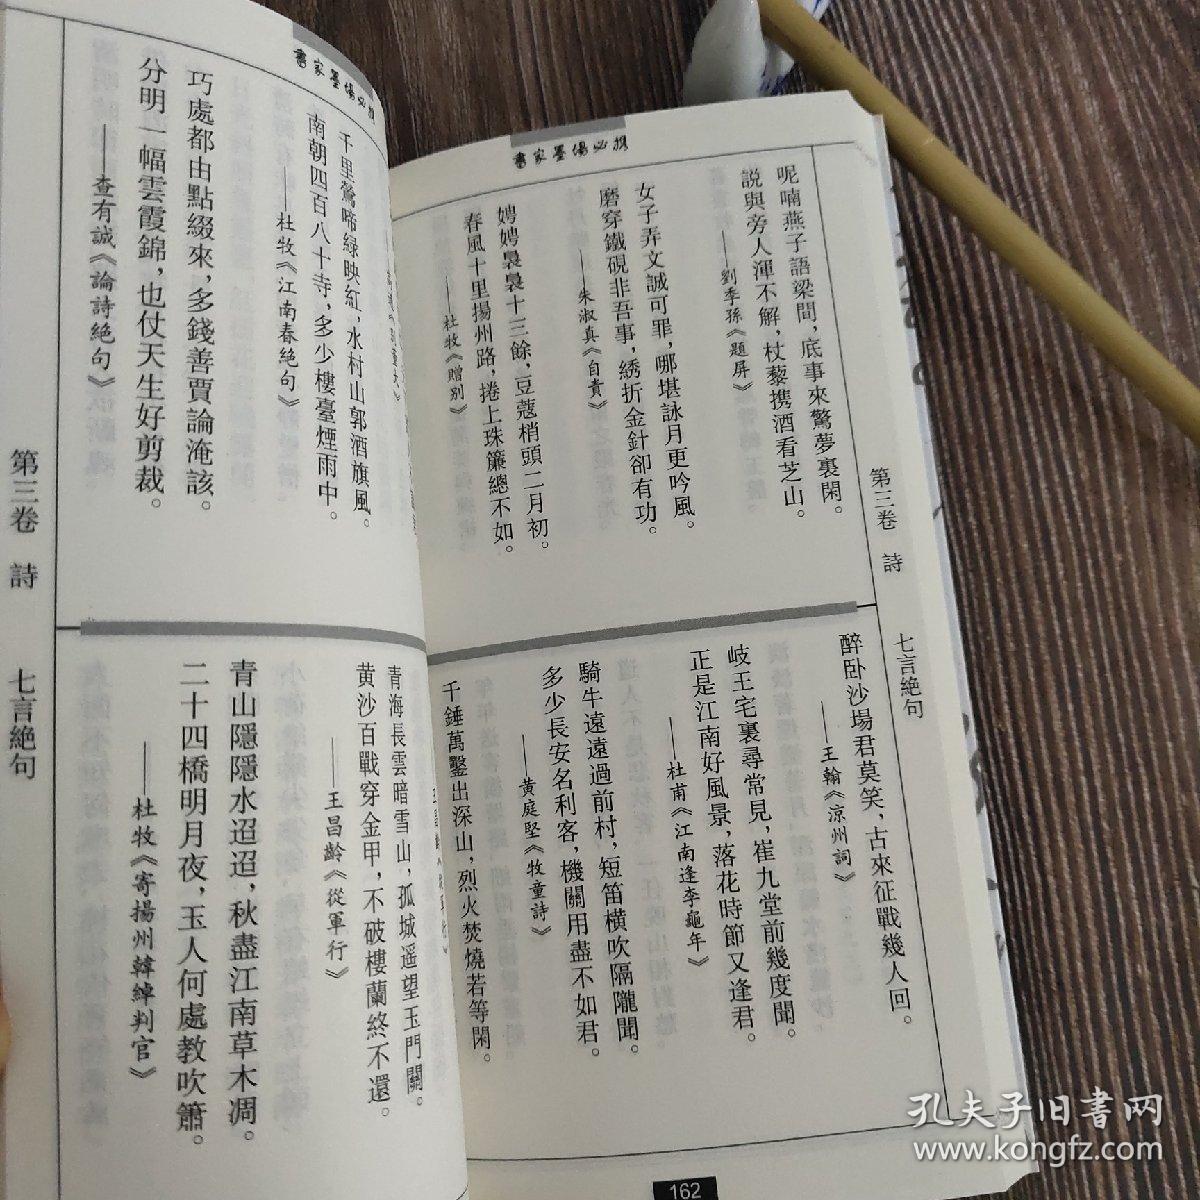 書家墨場必攜
呢喃燕子語梁間，底事來驚夢裏閑。
説與旁人渾不解，杖藜携酒看芝山。
——劉季孫《題屏》
女子弄文誠可罪，哪堪詠月更吟風。
磨穿鐵硯非吾事，綉折金針卻有功。
——朱淑真《自責》
娉娉裊裊十三餘，豆蔻梢頭二月初。
春風十里揚州路，捲上珠簾總不如。
——杜牧《贈别》
第三卷 詩 七言絕句
醉卧沙場君莫笑，古來征戰幾人回。
——王翰《涼州詞》
岐王宅裏尋常見，崔九堂前幾度聞。
正是江南好風景，落花時節又逢君。
——杜甫《江南逢李龜年》
騎牛遠遠過前村，短笛橫吹隔隴聞。
多少長安名利客，機關用盡不如君。
——黃庭堅《牧童詩》
千錘萬鑿出深山，烈火焚燒若等閑。
162
書家墨場必攜
千里鶯啼緑映紅，水村山郭酒旗風。
南朝四百八十寺，多少樓臺煙雨中。
——杜牧《江南春絕句》
巧處都由點綴來，多錢善賈論淹該。
分明一幅雲霞錦，也仗天生好剪裁。
——查有誠《論詩絕句》
青海長雲暗雪山，孤城遥望玉門關。
黄沙百戰穿金甲，不破樓蘭終不還。
——王昌齡《從軍行》
青山隱隱水迢迢，秋盡江南草木凋。
二十四橋明月夜，玉人何處教吹簫。
——杜牧《寄揚州韓綽判官》
第三卷 詩 七言絕句
孔夫子旧書网
www.kongfz.com